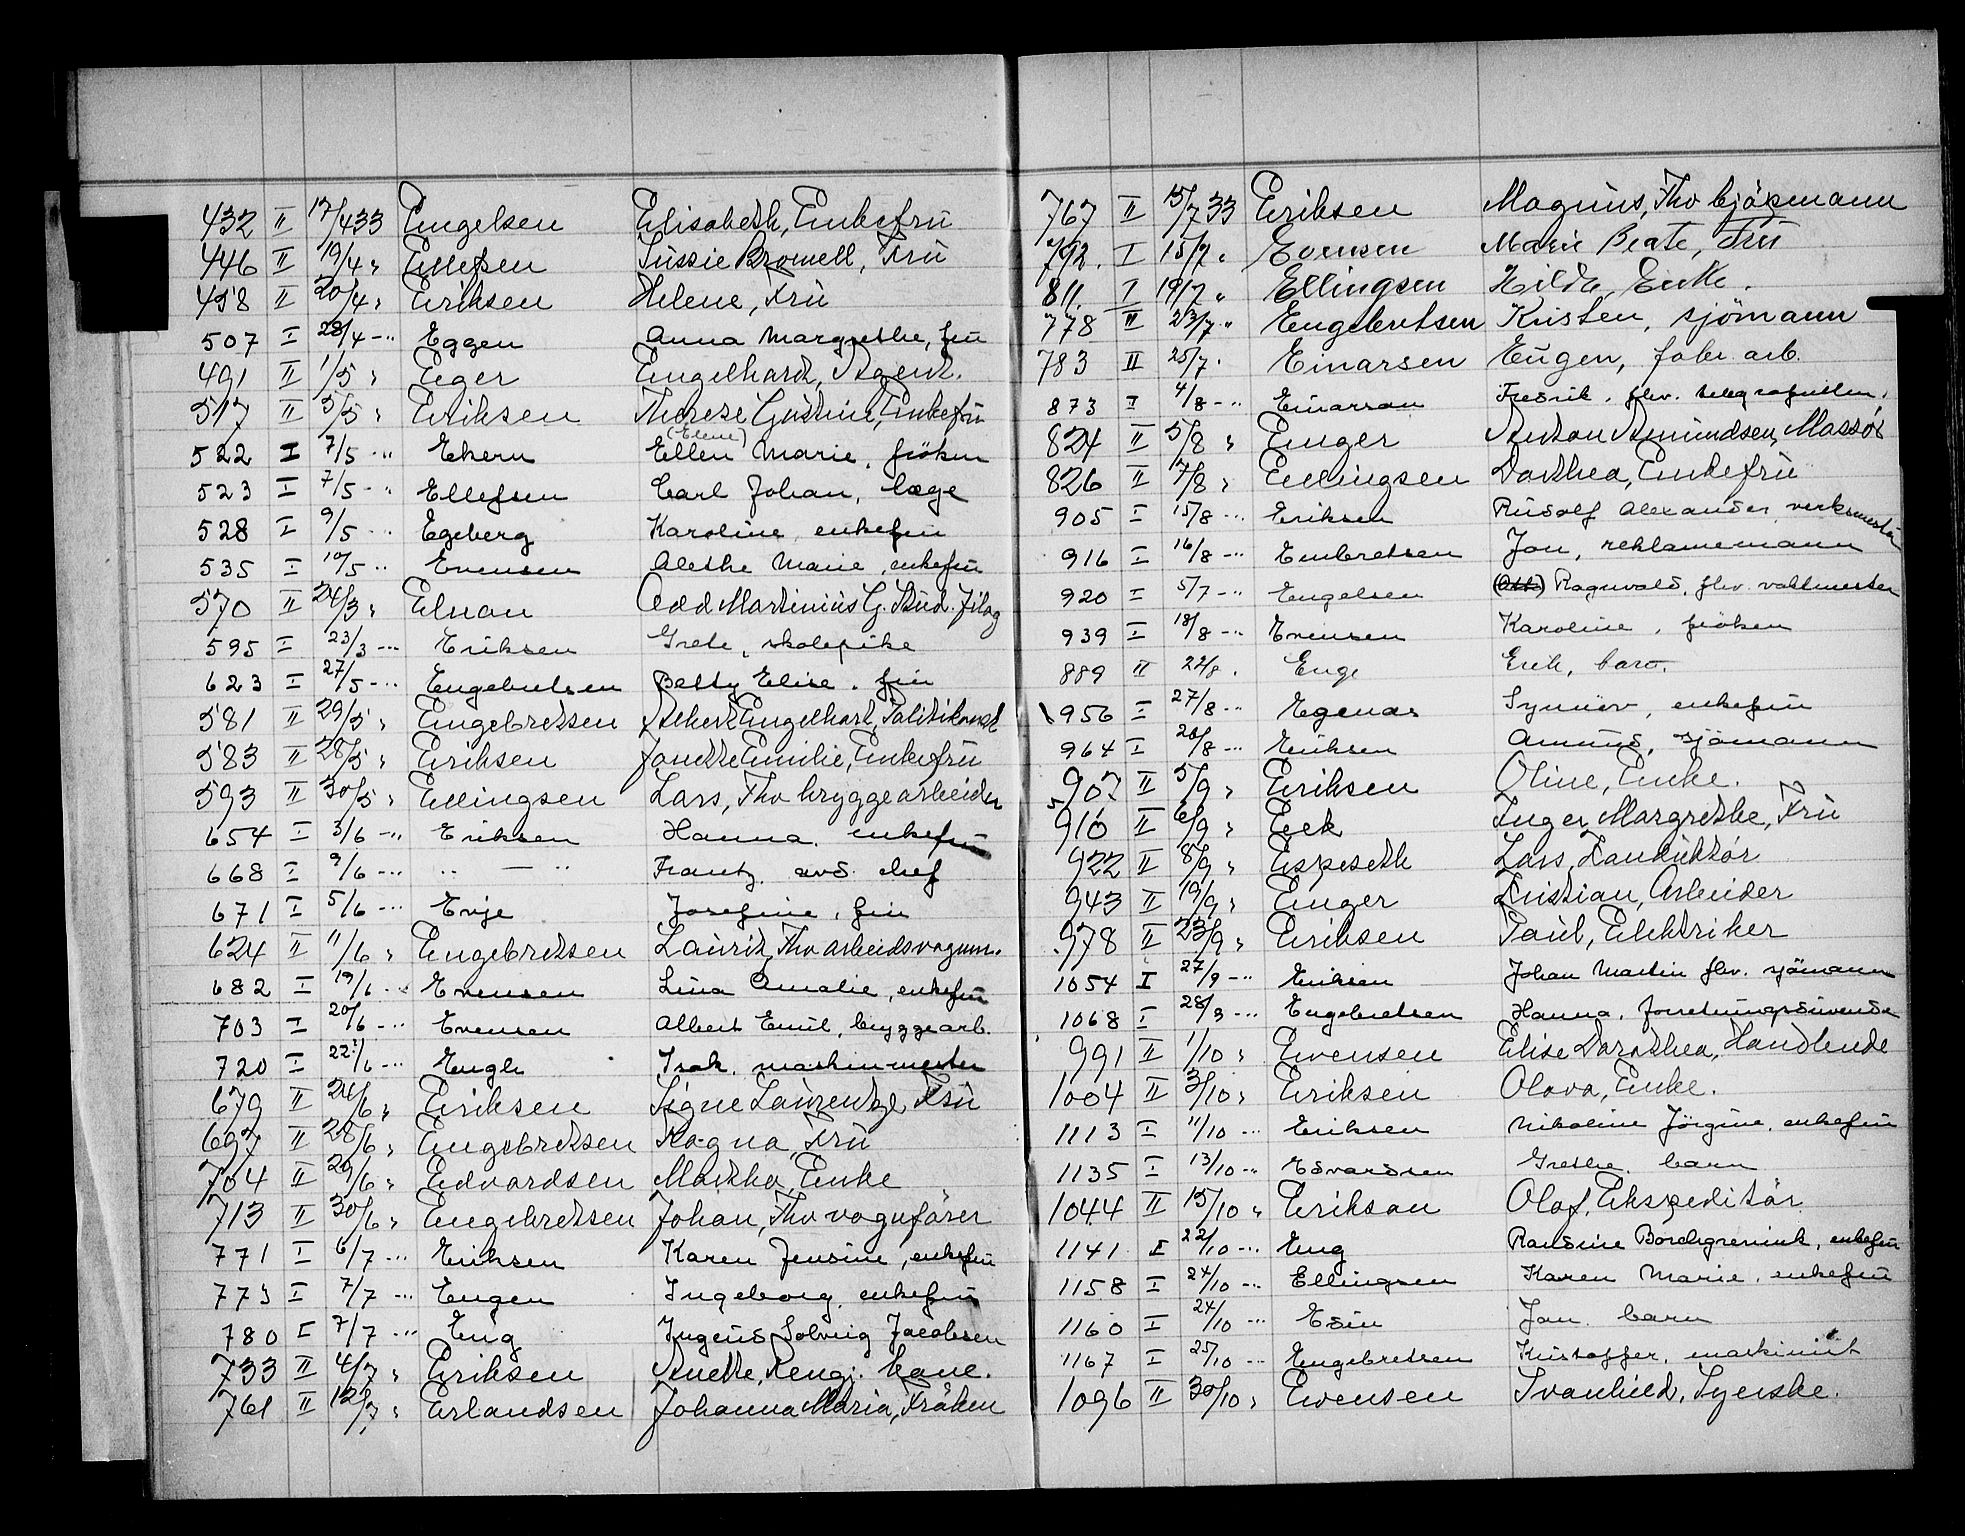 432 II 17/4 33 Engelsen Elisabeth, Enkefru
446 II 19/4 " Ellefsen Sussie Bromell, Fru
458 II 20/4 " Eriksen Helene, Fru
507 I 28/4 -"- Eggen Anna Margrethe, fru
491 II 1/5 " Eger Engelhardt, Agent.
517 II 5/5 " Eriksen Therese Gustine, Enkefru
522 I 7/5 -"- Ekern Ellen (Elene) Marie, fröken
523 I 7/5 -"- Ellefsen Carl Johan, læge
528 I 9/5 -"- Egeberg Karoline enkefru
535 I 10/5 -"- Evensen Alethe Marie, enkefru
570 II 24/3 " Elnan Odd Martinius G. Stud. filog
595 I 23/3 -"- Eriksen Grete, skolepike
623 I 27/5 -"- Engebretsen Betty Elise, fru
581 II 29/5 " Engebretsen Albert Engelhart, Politikonst
583 II 28/5 " Eriksen Janette Emilie, Enkefru
593 II 30/5 " Ellingsen Lars, Fhv bryggearbeider
654 I 3/6 -"- Eriksen Hanna, enkefru
668 I 9/6 -"- " — " Frantz, avd. chef
671 I 5/6 -"- Evje Josefine, fru
624 II 11/6 " Engebretsen Lauritz, Fhv arbeidsvognm.
682 I 19/6 -"- Evensen Lina Amalie, enkefru
703 I 20/6 -"- Evensen Albert Emil, bryggearb.
720 I 22/6 -"- Engh Isak, maskinmester
679 II 24/6 " Eriksen Signe Laurentze, Fru
697 II 28/6 " Engebretsen Ragna, Fru
704 II 29/6 " Edvardsen Martha, Enke
713 II 30/6 " Engebretsen Johan, Fhv vognfører
771 I 6/7 -"- Eriksen Karen Jensine, enkefru
773 I 7/7 -"- Engen Ingeborg, enkefru
780 I 7/7 -"- Eng Ingerid Solveig Jacobsen
733 II 4/7 " Eriksen Anette, Rengj. kone.
761 II 12/7 " Erlandsen Johanna Maria, Frøken
767 II 15/7 33 Eriksen Magnus, Fhv kjøpmann
792. I 15/7 " Evensen Marie Beate, Fru
811. I 19/7 " Ellingsen Hilda, Enke.
778 II 23/7 " Engebretsen Kristen, sjömann
783 II 25/7 " Einarsen Eugen, fabr. arb.
873 I 4/8 -"- Einarsen Fredrik, fhv. telegrafutlen.
824 II 5/8 " Enger Anton Amundsen, Massør
826 II 17/8 " Ellingsen Dorthea, Enkefru
905 I 15/8 -"- Eriksen Rudolf Alexander verksmester
916 I 16/8 -"- Embretsen Jon, reklamemann
920 I 5/7 -"- Engelsen Ragnvald, fhv. vaktmester
939 I 18/8 -"- Evensen Karoline, fröken
889 II 22/8. Enge Erik, barn.
956 I 27/8 -"- Egenæs Synnöv, enkefru
964 I 28/8 -"- Eriksen Amund, sjömann
907 II 5/9 " Eriksen Oline, Enke.
910 II 6/9 " Eek Inger Margrethe, Fru
922 II 8/9 " Espeseth Lars, Konduktør
943 II 19/9 " Enger Kristian, Arbeider
978 II 23/9 " Eriksen Paul, Elektriker
1054 I 27/9 -"- Eriksen Johan Martin fhv. sjömann
1068 I 28/9 -"- Engebretsen Hanna, forretningsdrivende
991 II 1/10 " Evensen Elise Dorothea, Handlende
1004 II 3/10 " Eriksen Olava, Enke.
1113 I 11/10 -"- Eriksen Nikoline Jörgine, enkefru
1135 I 13/10 -"- Edvardsen Grethe, barn
1044 II 15/10 " Erikson Olaf, Ekspeditør
1141 I 22/10 -"- Eng Randine Borchgrevink, enkefru
1158 I 24/10 -"- Ellingsen Karen Marie, enkefru
1160 I 24/10 -"- Edin Jan, barn
1167 I 25/10 -"- Engebretsen Kristoffer, maskinist
1096 II 30/10 " Evensen Svanhild, Syerske.